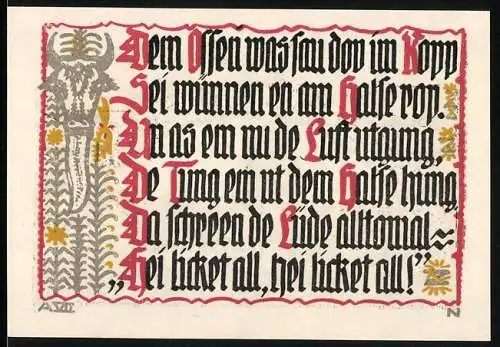 Dem Ossen was sau dov im Kopp
Sei wünnen en am Halse rop.
Un as em nu de Luft utgung,
De Tung em ut dem Halse hung,
Da schreen de Lüde alltomal~
„Hei licket all, hei licket all!“
N